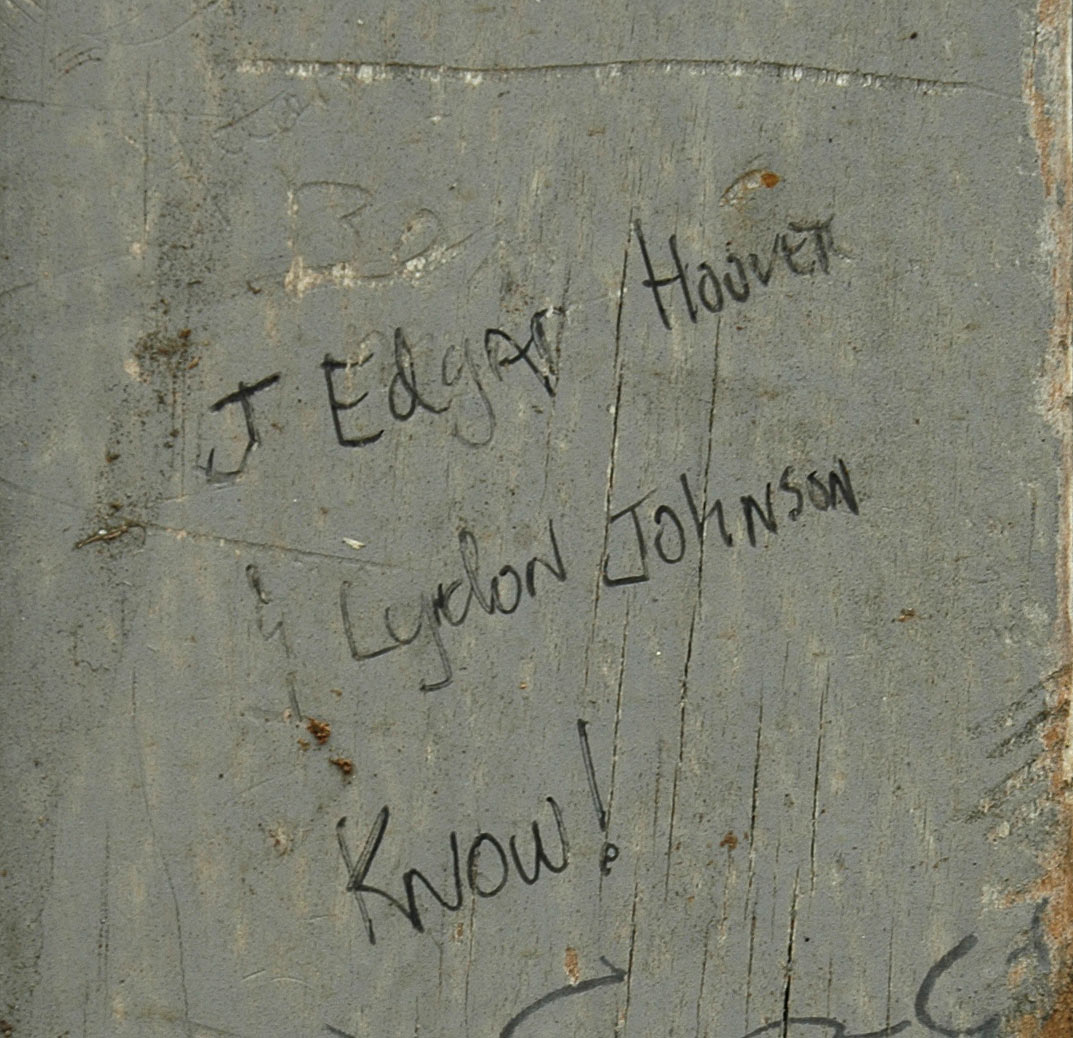 J Edgar Hoover
& Lyndon Johnson
Know!